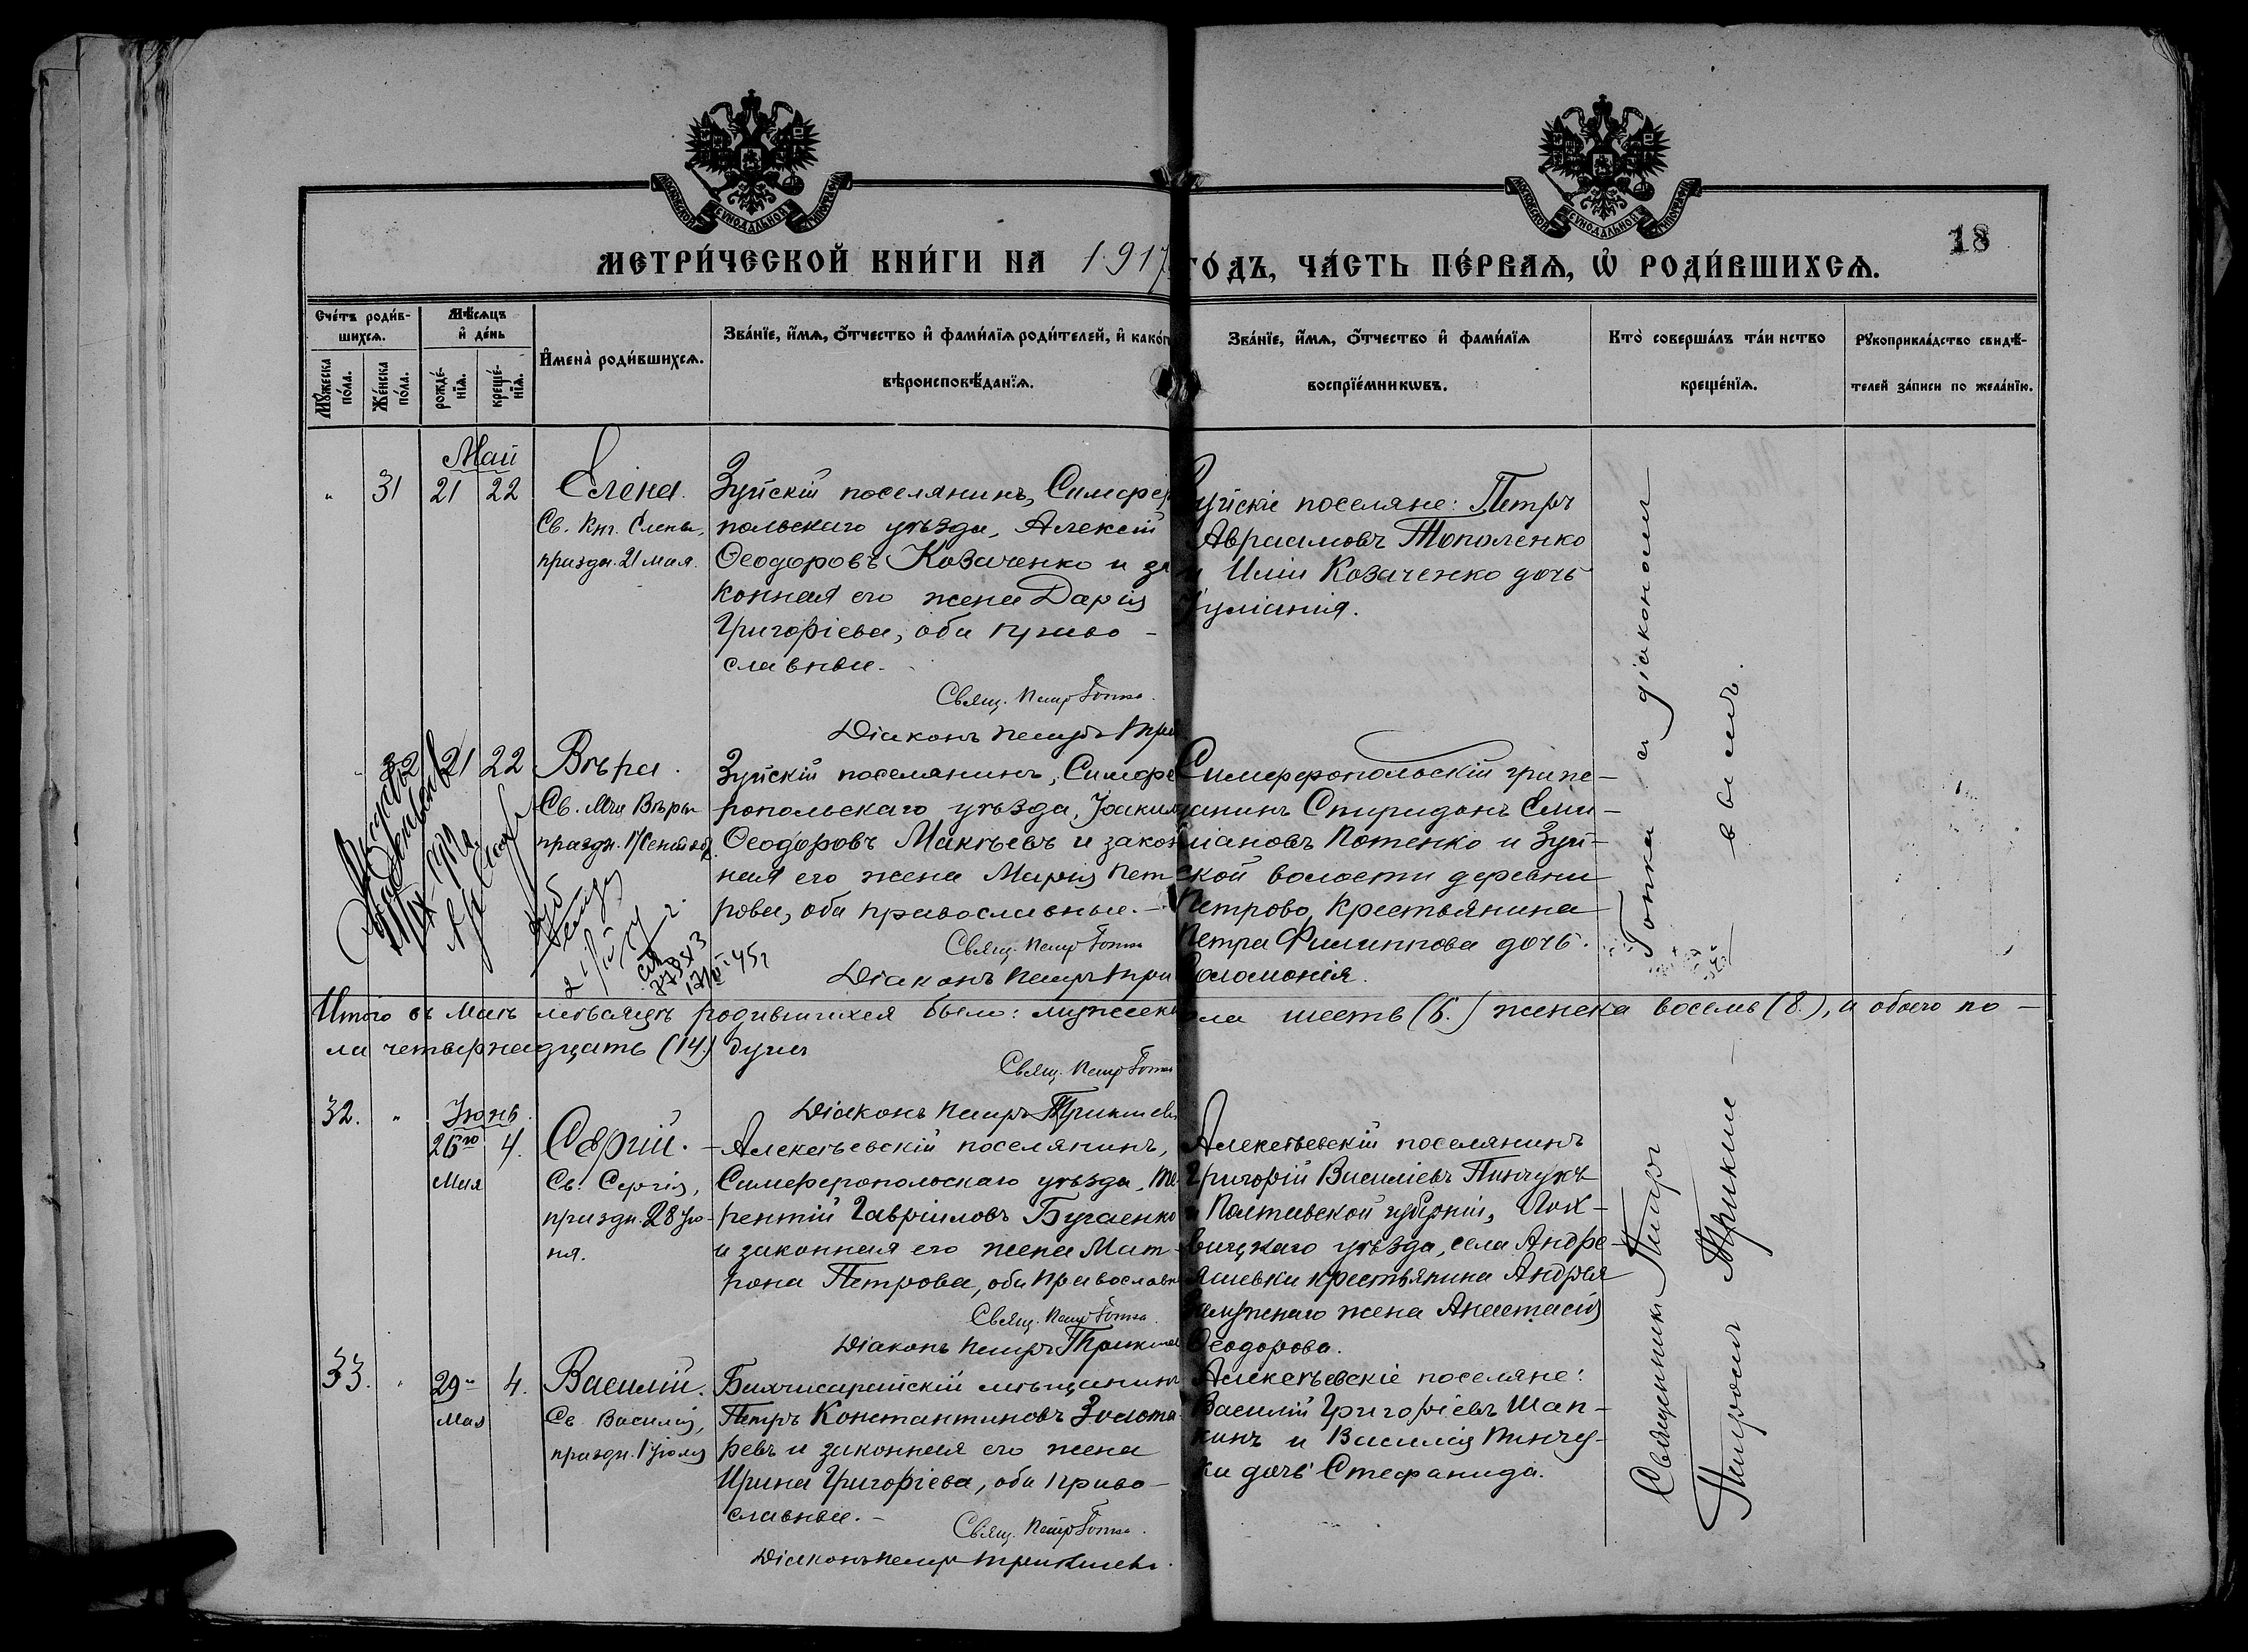 МОСКОВСКОЙ СУНОДАЛЬНОЙ ТИПОГРАФІИ
МОСКОВСКОЙ СУНОДАЛЬНОЙ ТИПОГРАФІИ
18
МЕТРИ́ЧЕСКОЙ КНИ́ГИ НА 1917 ГО́ДЪ, ЧА́СТЬ ПЕ́РВАѦ, Ѡ҆ РОДИ́ВШИХСѦ.
Сче́тъ роди́в-
шихсѧ.
Мꙋ́жеска по́ла.
Же́нска по́ла.
Мѣ́сѧцъ
и҆ де́нь
рожде́-нїѧ.
креще́-нїѧ.
И҆мена̀ роди́вшихсѧ.
Зва́нїе, и҆́мѧ, ѻ҆́тчество и҆ фами́лїѧ роди́телей, и҆ како́г
вѣроисповѣ́данїѧ.
Зва́нїе, и҆́мѧ, ѻ҆́тчество и҆ фами́лїѧ
воспрїе́мникѡвъ.
Кто̀ соверша́лъ та́инство
креще́нїѧ.
Рꙋкоприкла́дство свидѣ́-
телей за́писи по жела́нїю.
Май
" 31 21 22
Елена.
Св. Кнг. Елены,
праздн. 21 мая.
Зуйскій поселянинъ, Симфер
польскаго уѣзда, Алексій
Ѳеодоровъ Козаченко и за
конная его жена Дарія
Григоріева, оба право-
славные.
Свящ. Петръ Гопка.
Діаконъ Петръ Трик
Зуйскіе поселяне: Петръ
Авраамовъ Тополенко
и Иліи Козаченко дочь
Іуліанія.
32 21 22
Вѣра.
Св. Мчц Вѣры
праздн. 17 Сентября
Зуйскій поселянинъ, Симфе
ропольскаго уѣзда, Іоакимъ
Ѳеодоровъ Макѣевъ и закон
ная его жена Марія Пет
рова, оба православные.-
Свящ. Петръ Гопка
Діаконъ Петръ Три
Симферопольскій граж-
данинъ Спиридонъ Еми-
ліановъ Потенко и Зуй-
ской волости деревни
Петрово, крестьянина
Петра Филиппова дочь
Соломонія.
12/VI-45г
Итого въ маѣ мѣсяцѣ родившихся было: мужеска пола шесть (6.) женска восемь (8.), и обоего по-
ла четырнадцать (14.) душъ
Свящ. Петръ Гопка
Діаконъ Петръ Трикилев
32. "
Іюнь.
26го 4.
Мая
Сергій.
Св. Сергія,
праздн. 28 Ію-
ня.
Алексѣевскій поселянинъ,
Симферопольскаго уѣзда, Те
рентій Гавріиловъ Бугаенко
и законная его жена Мат-
рона Петрова, оба православн
Свящ. Петръ Гопка.
Діаконъ Петръ Трикилев
Алексѣевскій поселянинъ
Григорій Василіевъ Пинчукъ
и Полтавской губерніи, Лох-
вицкаго уѣзда, села Андре-
яшевки крестьянина Андрея
жена Анастасія
Ѳеодорова.
33. "
29го 4.
Мая
Василій.
Св. Василія,
праздн. 1 Іюля
Бахчисарайскій мѣщанинъ
Петръ Константиновъ Золота
ревъ и законная его жена
Ирина Григоріева, оба право-
славные.-
Свящ. Петръ Гопка.
Діаконъ Петръ Трикилевъ.
Алексѣевскіе поселяне:
Василій Григоріевъ Шап-
кинъ и Василія Пинчу-
ка дочь Стефанида.
Священникъ Петръ Гопка съ діакономъ
Петромъ Трикиле-вымъ.